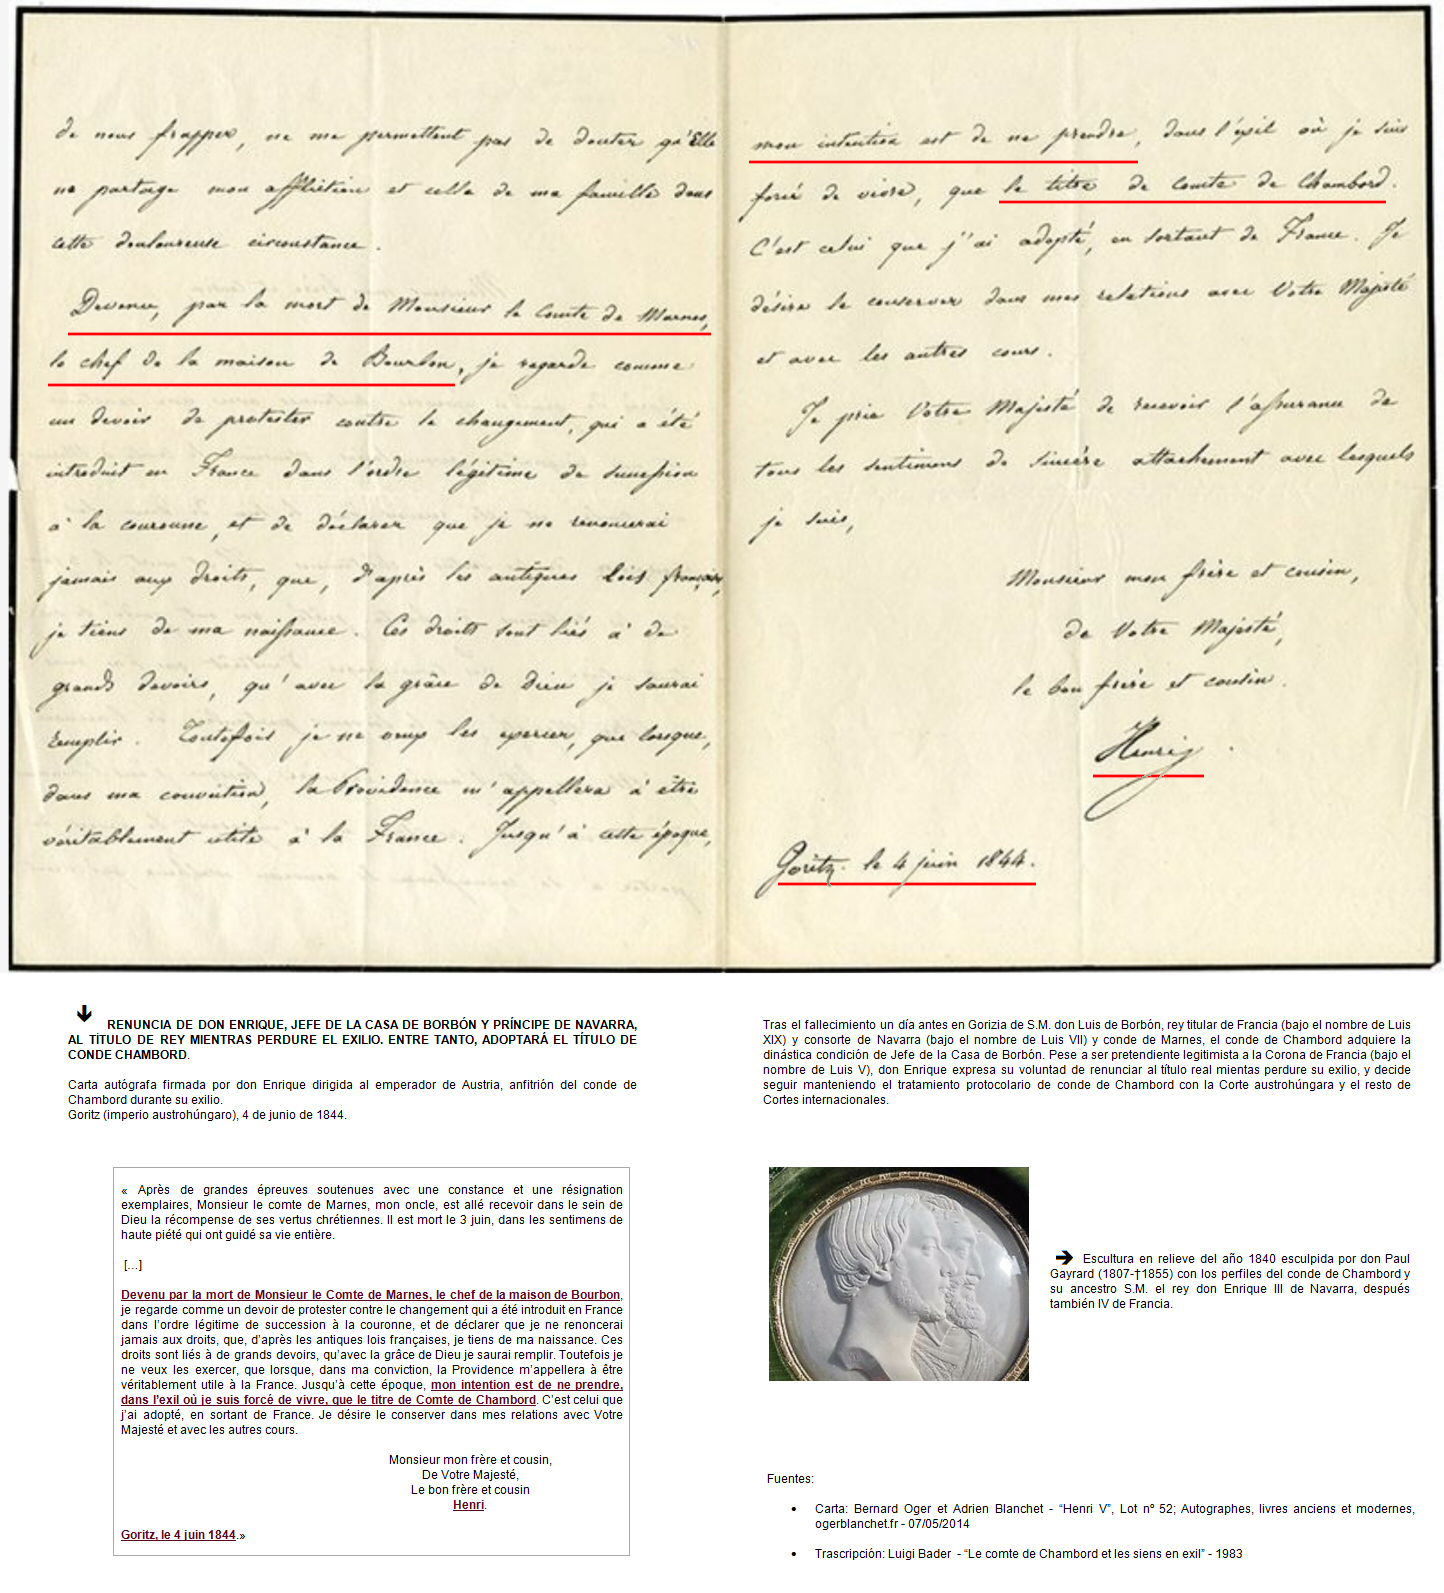 de nous frapper, ne me permettent pas de douter qu'Elle
ne partage mon affliction et celle de ma famille dans
cette douloureuse circonstance.
Devenu, par la mort de Monsieur le Comte de Marnes,
le chef de la maison de Bourbon, je regarde comme
un devoir de protester contre le changement, qui a été
introduit en France dans l'ordre légitime de succession
à la couronne, et de déclarer que je ne renoncerai
jamais aux droits, que, d'après les antiques lois françaises,
je tiens de ma naissance. Ces droits sont liés à de
grands devoirs, qu'avec la grâce de Dieu je saurai
remplir. Toutefois je ne veux les exercer, que lorsque,
dans ma conviction, la Providence m'appellera à être
véritablement utile à la France. Jusqu'à cette époque,
mon intention est de ne prendre, dans l'exil où je suis
forcé de vivre, que le titre de Comte de Chambord.
C'est celui que j'ai adopté, en sortant de France. Je
désire le conserver dans mes relations avec Votre Majesté
et avec les autres cours.
Je prie Votre Majesté de recevoir l'assurance de
tous les sentimens de sincère attachement avec lesquels
je suis,
Monsieur mon frère et cousin,
de Votre Majesté,
le bon frère et cousin.
Henri
Goritz. le 4 juin 1844.
RENUNCIA DE DON ENRIQUE, JEFE DE LA CASA DE BORBÓN Y PRÍNCIPE DE NAVARRA,
AL TÍTULO DE REY MIENTRAS PERDURE EL EXILIO. ENTRE TANTO, ADOPTARÁ EL TÍTULO DE
CONDE CHAMBORD.
Carta autógrafa firmada por don Enrique dirigida al emperador de Austria, anfitrión del conde de
Chambord durante su exilio.
Goritz (imperio austrohúngaro), 4 de junio de 1844.
« Après de grandes épreuves soutenues avec une constance et une résignation
exemplaires, Monsieur le comte de Marnes, mon oncle, est allé recevoir dans le sein de
Dieu la récompense de ses vertus chrétiennes. Il est mort le 3 juin, dans les sentimens de
haute piété qui ont guidé sa vie entière.
[...]
Devenu par la mort de Monsieur le Comte de Marnes, le chef de la maison de Bourbon,
je regarde comme un devoir de protester contre le changement qui a été introduit en France
dans l'ordre légitime de succession à la couronne, et de déclarer que je ne renoncerai
jamais aux droits, que, d'après les antiques lois françaises, je tiens de ma naissance. Ces
droits sont liés à de grands devoirs, qu'avec la grâce de Dieu je saurai remplir. Toutefois je
ne veux les exercer, que lorsque, dans ma conviction, la Providence m'appellera à être
véritablement utile à la France. Jusqu'à cette époque, mon intention est de ne prendre,
dans l'exil où je suis forcé de vivre, que le titre de Comte de Chambord. C'est celui que
j'ai adopté, en sortant de France. Je désire le conserver dans mes relations avec Votre
Majesté et avec les autres cours.
Monsieur mon frère et cousin,
De Votre Majesté,
Le bon frère et cousin
Henri.
Goritz, le 4 juin 1844.»
Tras el fallecimiento un día antes en Gorizia de S.M. don Luis de Borbón, rey titular de Francia (bajo el nombre de Luis
XIX) y consorte de Navarra (bajo el nombre de Luis VII) y conde de Marnes, el conde de Chambord adquiere la
dinástica condición de Jefe de la Casa de Borbón. Pese a ser pretendiente legitimista a la Corona de Francia (bajo el
nombre de Luis V), don Enrique expresa su voluntad de renunciar al título real mientas perdure su exilio, y decide
seguir manteniendo el tratamiento protocolario de conde de Chambord con la Corte austrohúngara y el resto de
Cortes internacionales.
Escultura en relieve del año 1840 esculpida por don Paul
Gayrard (1807-†1855) con los perfiles del conde de Chambord y
su ancestro S.M. el rey don Enrique III de Navarra, después
también IV de Francia.
Fuentes:
• Carta: Bernard Oger et Adrien Blanchet - “Henri V”, Lot nº 52; Autographes, livres anciens et modernes,
ogerblanchet.fr - 07/05/2014
• Trascripción: Luigi Bader - “Le comte de Chambord et les siens en exil” - 1983